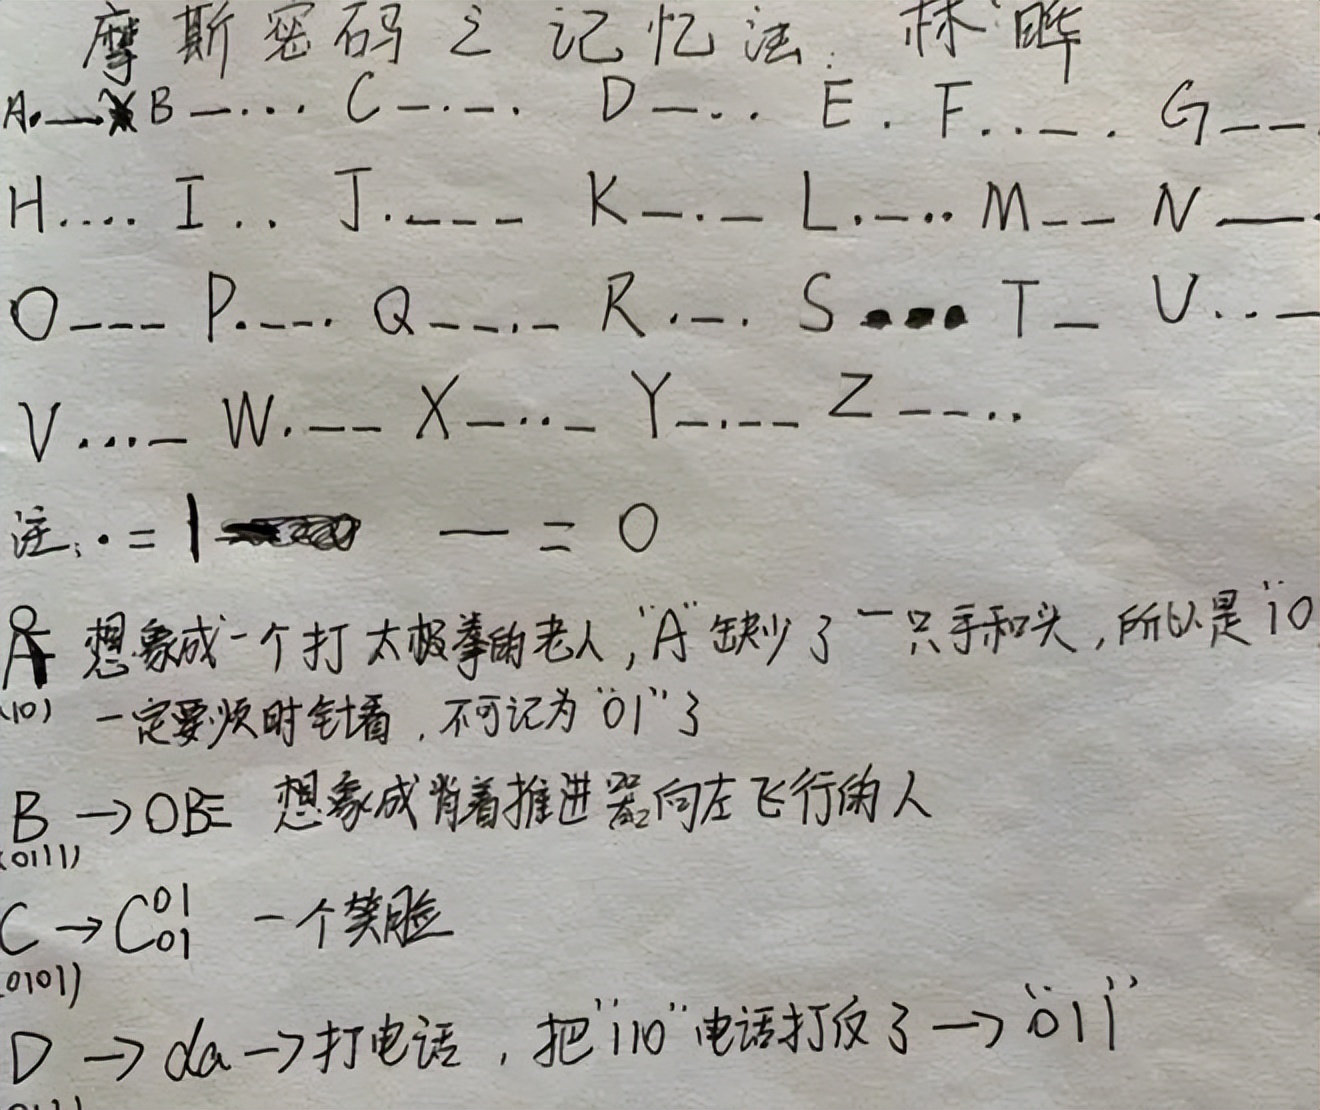 摩斯密码之记忆法. 林晔
A.— B—... C—.—. D—.. E. F..—. G——
H.... I.. J.——— K—.— L.—.. M—— N—.
O——— P.——. Q——.— R.—. S... T— U..—
V...— W.—— X—..— Y—.—— Z——..
注:·=1 —=0
想象成一个打太极拳的老人,"A"缺少了一只手和头,所以是"10
(10) 一定要顺时针看.不可记为"01"了
B→OBE 想象成背着推进器向左飞行的人
(0111)
C→C 01 01 一个笑脸
(0101)
D→da→打电话,把"110"电话打反了→"011"